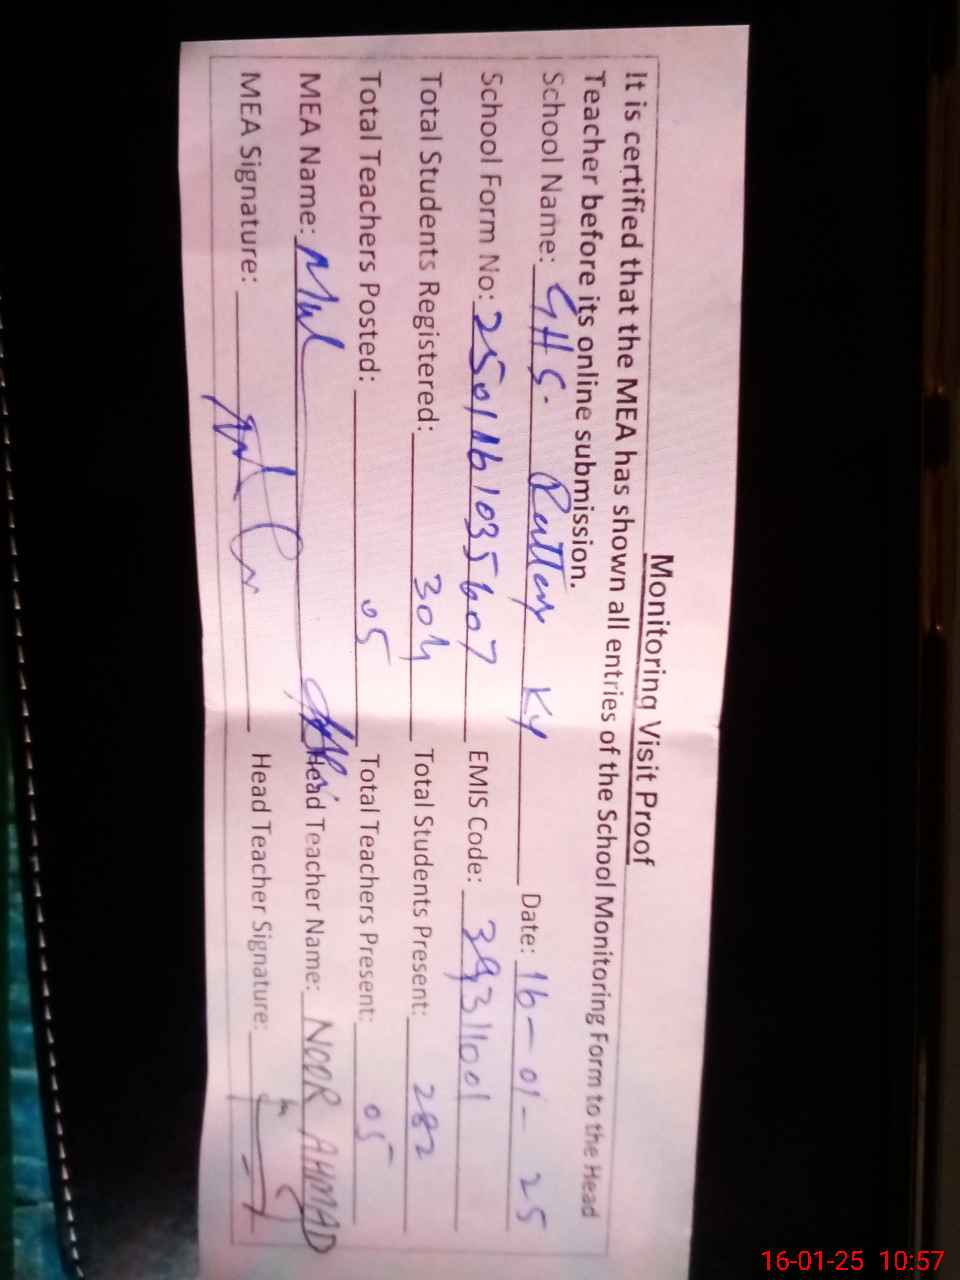 Monitoring Visit Proof
It is certified that the MEA has shown all entries of the School Monitoring Form to the Head
Teacher before its online submission.
School Name: GHS. Date: 16-01-25
School Form No: 25011161035607 EMIS Code: 39311001
Total Students Registered: 304 Total Students Present: 282
Total Teachers Posted: 05 Total Teachers Present: 05
MEA Name: Head Teacher Name: NOOR AHMAD
MEA Signature: Head Teacher Signature:
16-01-25 10:57